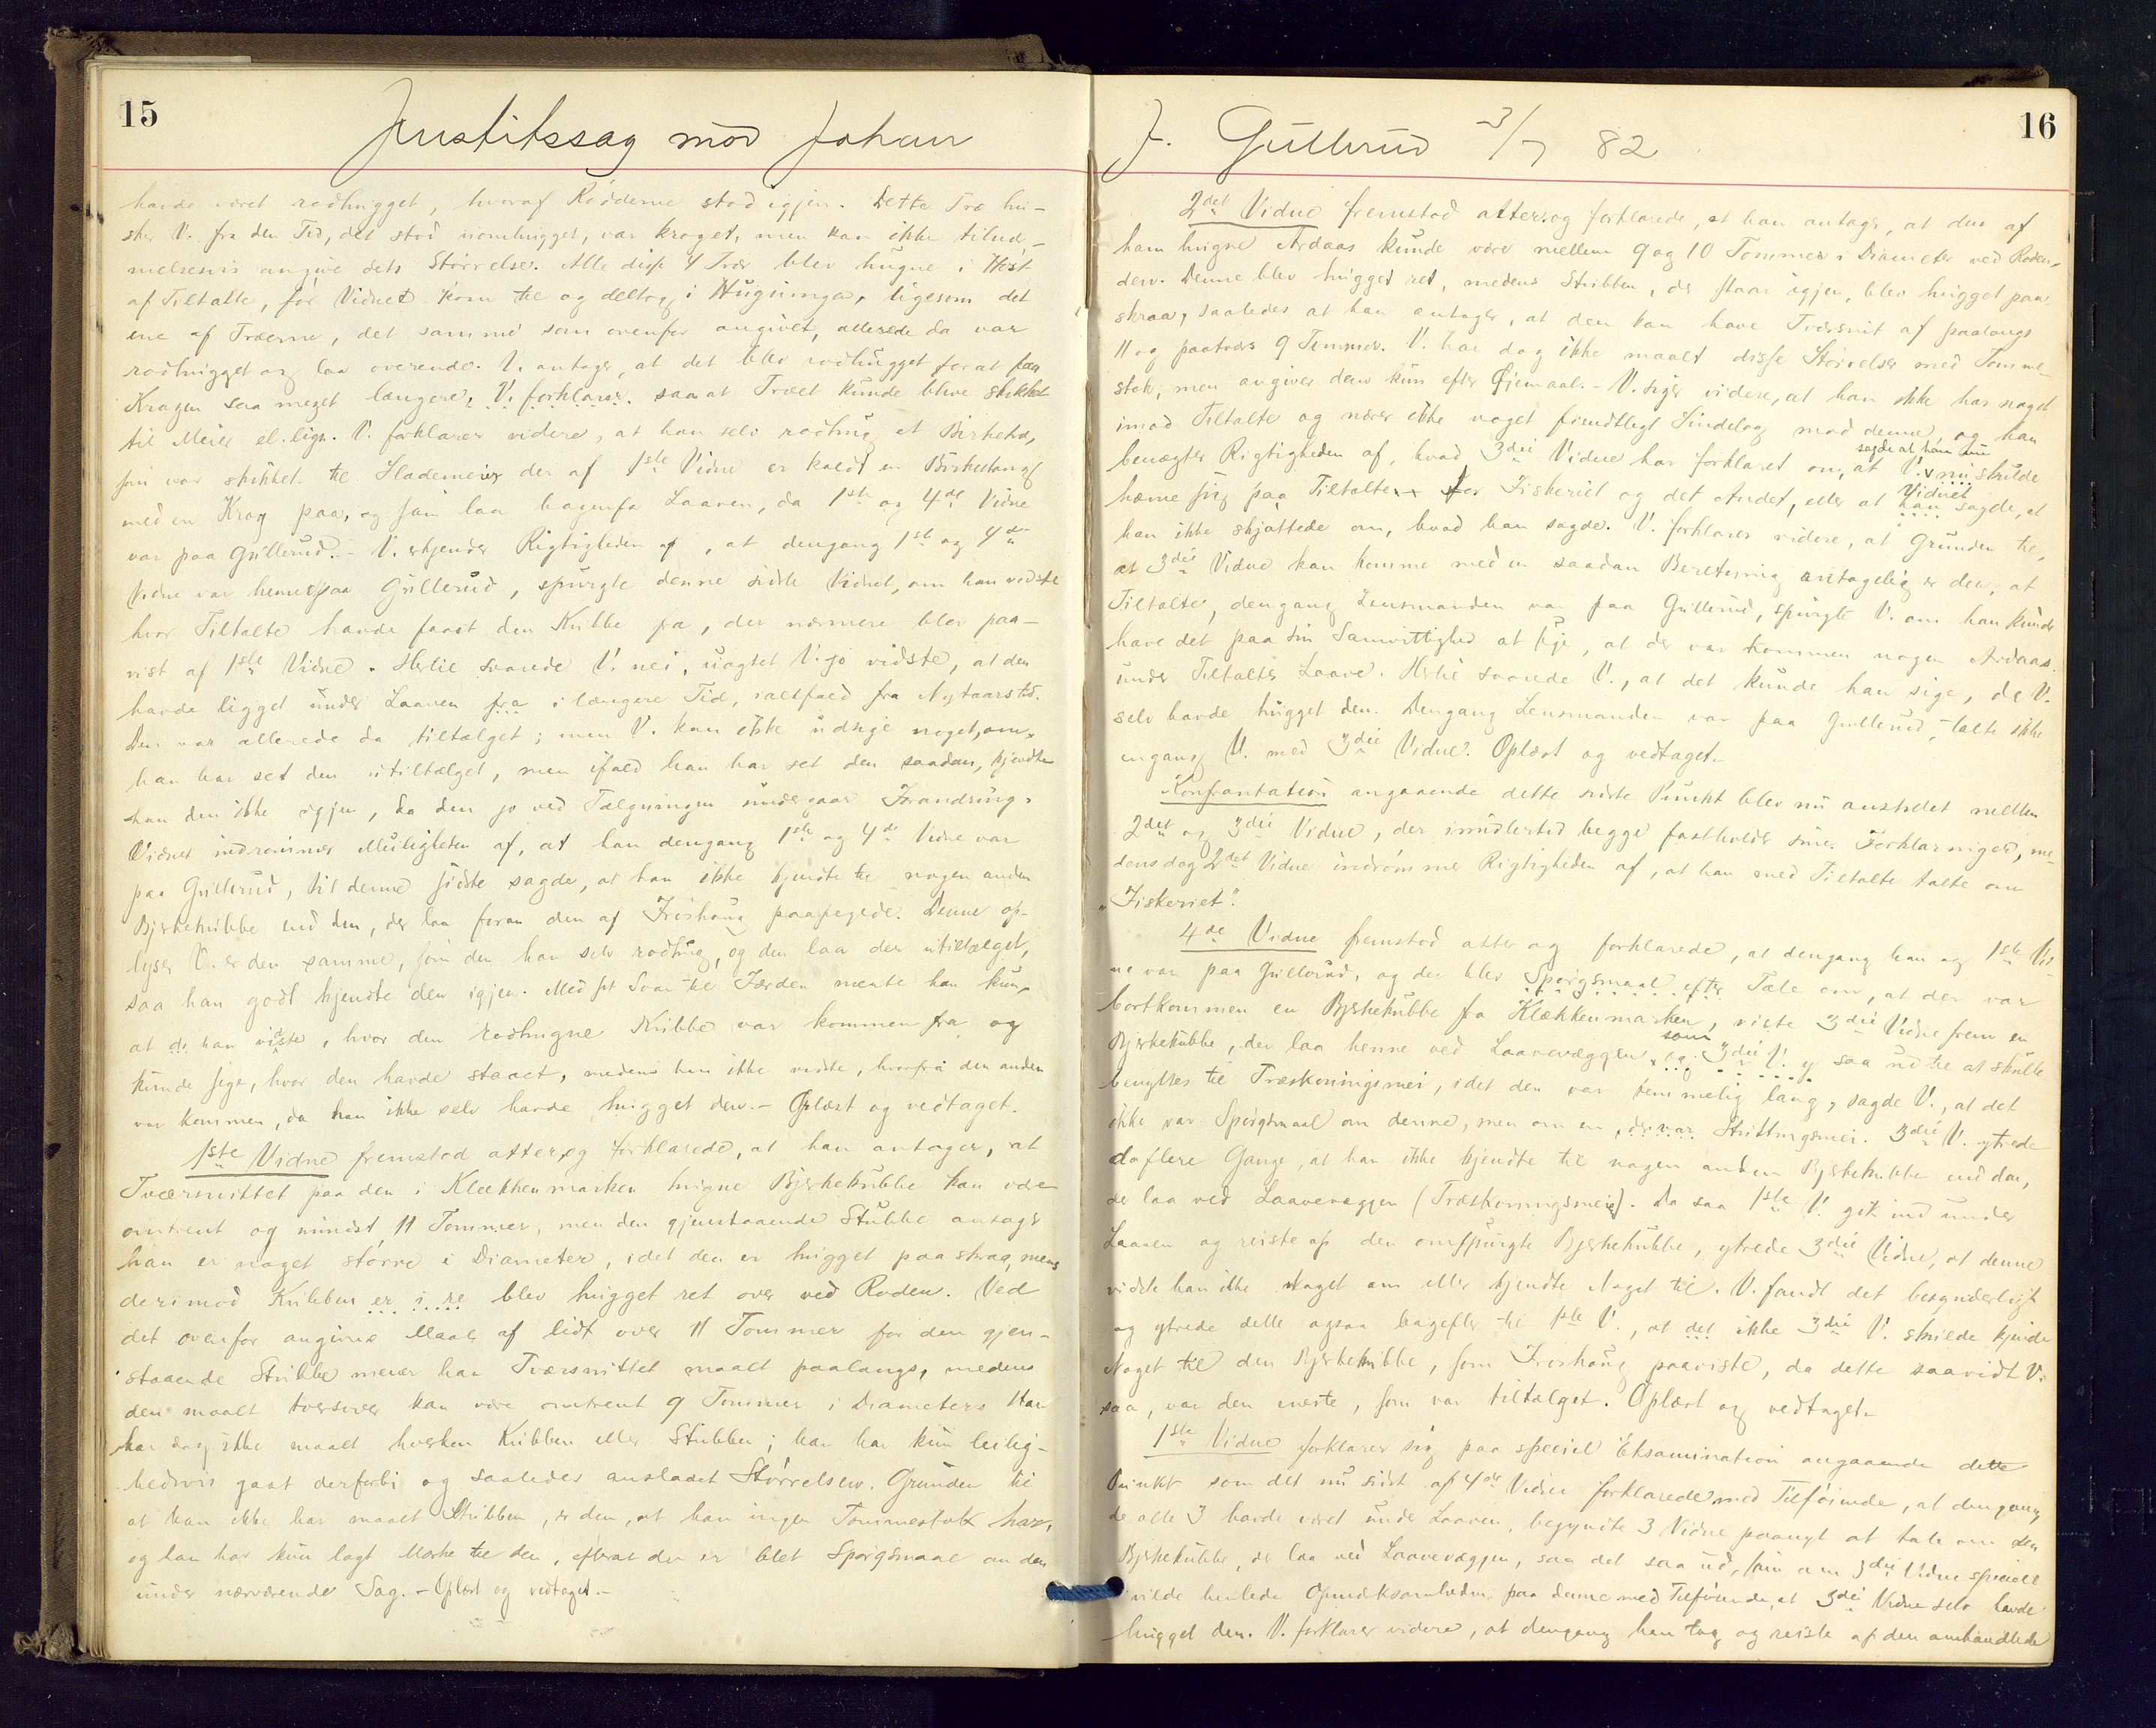 15
Justitssag mod Johan
havde været rodhugget, hvoraf Rødderne stod igjen. Dette Træ hu-
sker V. fra den Tid, det stod uomhugget, var kroget, men kan ikke tilnær-
melsesvis angive dets Størrelse. Alle disse 4 Trær blev hugne i Høst
af Tiltalte, før Vidnet kom til og deltog i Hugninga, ligesom det
ene af Træerne, det samme som ovenfor angivet, allerede da var
rodhugget og laa overende. V. antager, at det blev rodhugget for at faa
Krogen saa meget længere, V. forklarer saa at Træet kunde blive skikket
til Meier el. lign. V. forklarer videre, at han selv rodhug et Birketræ,
som var skikket til Slademeier der af 1ste Vidne er kaldt en Birkestang
med en Krog paa, og som laa bagenfor Laaven, da 1ste og 4de Vidne
var paa Gullerud. - V. erkjender Rigtigheden af, at dengang 1ste og 4de
Vidne var henne paa Gullerud, spurgte denne sidste Vidnet, om han vidste
hvor Tiltalte havde faaet den Kubbe fra, der nærmere blev paa-
vist af 1ste Vidne. Hertil svarede V. nei, uagtet V. jo vidste, at den
havde ligget under Laaven fra i længere Tid, ialfald fra Nytaarstid.
Den var allerede da tiltælget; men V. kan ikke udsige noget, om
han har set den utiltælget, men ifald han har set den saadan, kjendte
han den ikke igjen, da den jo ved Tælgningen undergaar Forandring.
Vidnet indrømmer Muligheden af, at han dengang 1ste og 4de Vidne var
paa Gullerud, til denne sidste sagde, at han ikke kjendte til nogen anden
Bjerkekubbe end den, der laa foran den af Froshaug paapegede. Denne op-
lyser V. er den samme, som den han selv rodhug, og den laa der utiltælget,
saa han godt kjendte den igjen. Med sit Svar til Færden mente han kun,
at de han vidste, hvor den rodhugne Kubbe var kommen fra og
kunde sige, hvor den havde staaet, medens han ikke vidste, hvorfra den anden
var kommen, da han ikke selv havde hugget den. - Oplæst og vedtaget.
1ste Vidne fremstod atter og forklarede, at han antager, at
Tværsnittet paa den i Klækkenmarken hugne Bjerkekubbe kan være
omtrent og mindst 11 Tommer, men den gjenstaaende Stubbe antager
han er noget større i Diameter, idet den er hugget paa skraa, mens
derimod Kubben er i re blev hugget ret over ved Roden. Ved
det ovenfor angivne Maal af lidt over 11 Tommer for den gjen-
staaende Stubbe mener han Tværsnittet maalt paalangs, medens
den maalt tversover kan være omtrent 9 Tommer i Diameter. Han
har dog ikke maalt hverken Kubben eller Stubben; han har kun leilig-
hedsvis gaat derforbi og saaledes anslaaet Størrelsen. Grunden til
at han ikke har maalt Stubben, er den, at han ingen Tommestok har,
og han har kun lagt Mærke til den, efterat der er blet Spørgsmaal om den
under nærværende Sag. - Oplæst og vedtaget. -
16
J. Gullerud 3/7 82
2det Vidne fremstod atter og forklarede, at han antager, at den af
ham hugne Ardaas kunde være mellem 9 og 10 Tommer i Diameter ved Roden
den. Denne blev hugget ret, medens Stubben, der staar igjen, blev hugget paa
skraa, saaledes at han antager, at den kan have Tværsnit af paalangs
11 og paatvers 9 Tommer. V. har dog ikke maalt disse Størrelser med Tomme-
stok, men angiver dem kun efter Øjemaal. - V. siger videre, at han ikke har noget
imod Tiltalte og nærer ikke noget fiendtligt Sindelag mod denne, og han
benægter Rigtigheden af, hvad 3die Vidne har forklaret om, at V. sagde at han nu skulde
hævne sig paa Tiltalte for Fiskeriet og det Andet, eller at han Vidnet sagde, at
han ikke skjøttede om, hvad han sagde. V. forklarer videre, at Grunden til,
at 3die Vidne kan komme med en saadan Beretning antagelig er den, at
Tiltalte, dengang Lensmanden var paa Gullerud, spurgte V. om han kunde
have det paa sin Samvittighed at sige, at der var kommen nogen Ardaas
under Tiltaltes Laave. Hertil svarede V., at det kunde han sige, da V.
selv havde hugget den. Dengang Lensmanden var paa Gullerud, talte ikke
engang V. med 3die Vidne. Oplæst og vedtaget.
Konfrontation angaaende dette sidste Punkt blev nu anstillet mellem
2det og 3die Vidne, der imidlertid begge fastholder sine Forklaringer, me-
dens dog 2det Vidne indrømmer Rigtigheden af, at han med Tiltalte talte om
"Fiskeriet".
4de Vidne fremstod atter og forklarede, at dengang han og 1ste Vid-
ne var paa Gullerud, og der blev Spørgsmaal efter Tale om, at der var
bortkommen en Bjerkekubbe fra Klækkenmarken, viste 3die Vidne frem en
Bjerkekubbe, der laa henne ved Laavevæggen og 3die V. som saa ud til at skulle
benyttes til Træskoningsmei, idet den var temmelig lang, sagde V., at det
ikke var Spørgsmaal om denne, men om en, der var Stuttingsmei. 3die V. ytrede
da flere Gange, at han ikke kjendte til nogen anden Bjerkekubbe end den,
der laa ved Laavevæggen (Træskoningsmeie). Da saa 1ste V. gik ind under
Laaven og reiste op den omspurgte Bjerkekubbe, ytrede 3die Vidne, at denne
vidste han ikke Noget om eller kjendte Noget til. V. fandt det besynderligt
og ytrede dette ogsaa bagefter til 1ste V., at det ikke 3die V. skulde kjende
Noget til den Bjerkekubbe, som Froshaug paaviste, da dette saavidt V.
saa, var den eneste, som var tiltælget. Oplæst og vedtaget.
1ste Vidne forklarer sig paa speciel Eksamination angaaende dette
Punkt som det nu sidst af 4de Vidne forklarede med Tilføiende, at dengang
de alle 3 havde været under Laaven, begyndte 3 Vidne paanyt at tale om den
Bjerkekubbe, der laa ved Laavevæggen, saa det saa ud, som om 3die Vidne specielt
vilde henlede Opmærksomheden paa denne med Tilføiende, at 3die Vidne selv havde
hugget den. V. forklarer videre, at dengang han tog og reiste op den omhandlede